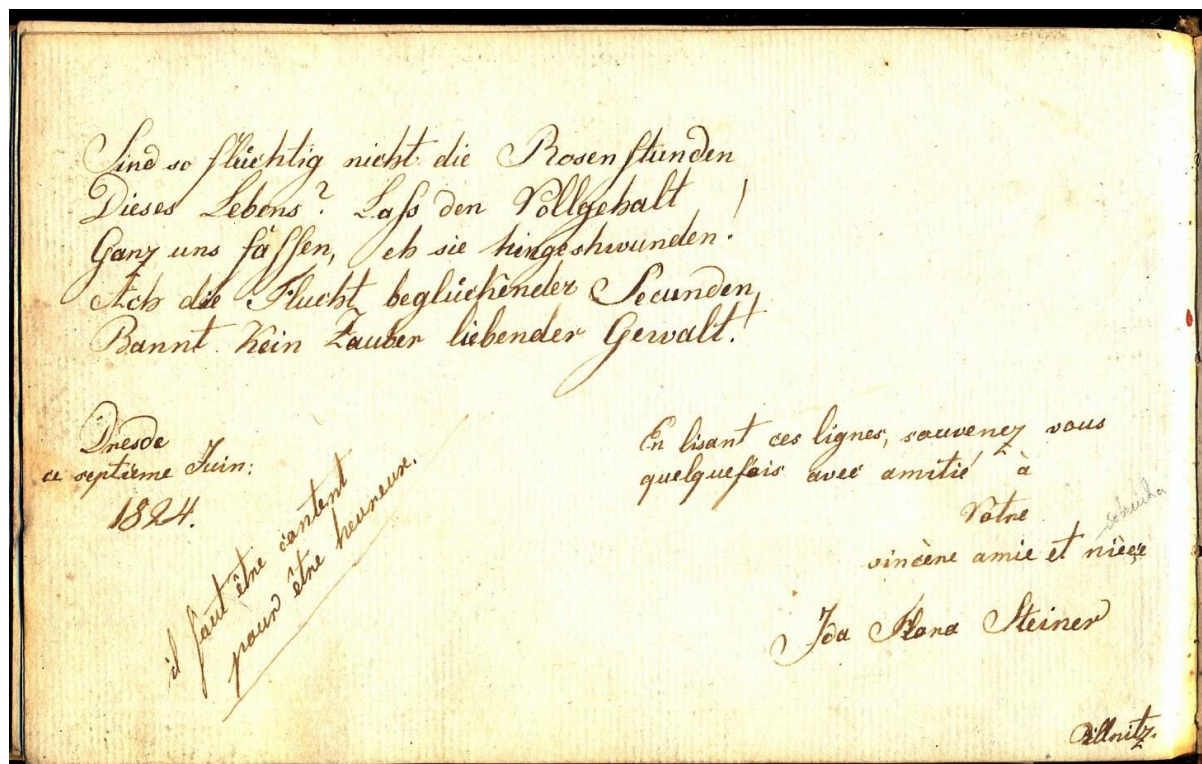 Sind so flüchtig nicht die Rosenstunden
Dieses Lebens? Lass den Vollgehalt !
Ganz uns fässen, eh sie hingeshwunden.
Ach die Flucht beglückender Secunden,
Bannt Kein Zauber liebender Gewalt!
Dresde
ce septième Juin:
1824.
il faut être content
pour être heureux.
En lisant ces lignes, souvenez vous
quelquefois avec amitié à
Votre
sincère amie et nièce
Ida Flora Steiner
Pillnitz.